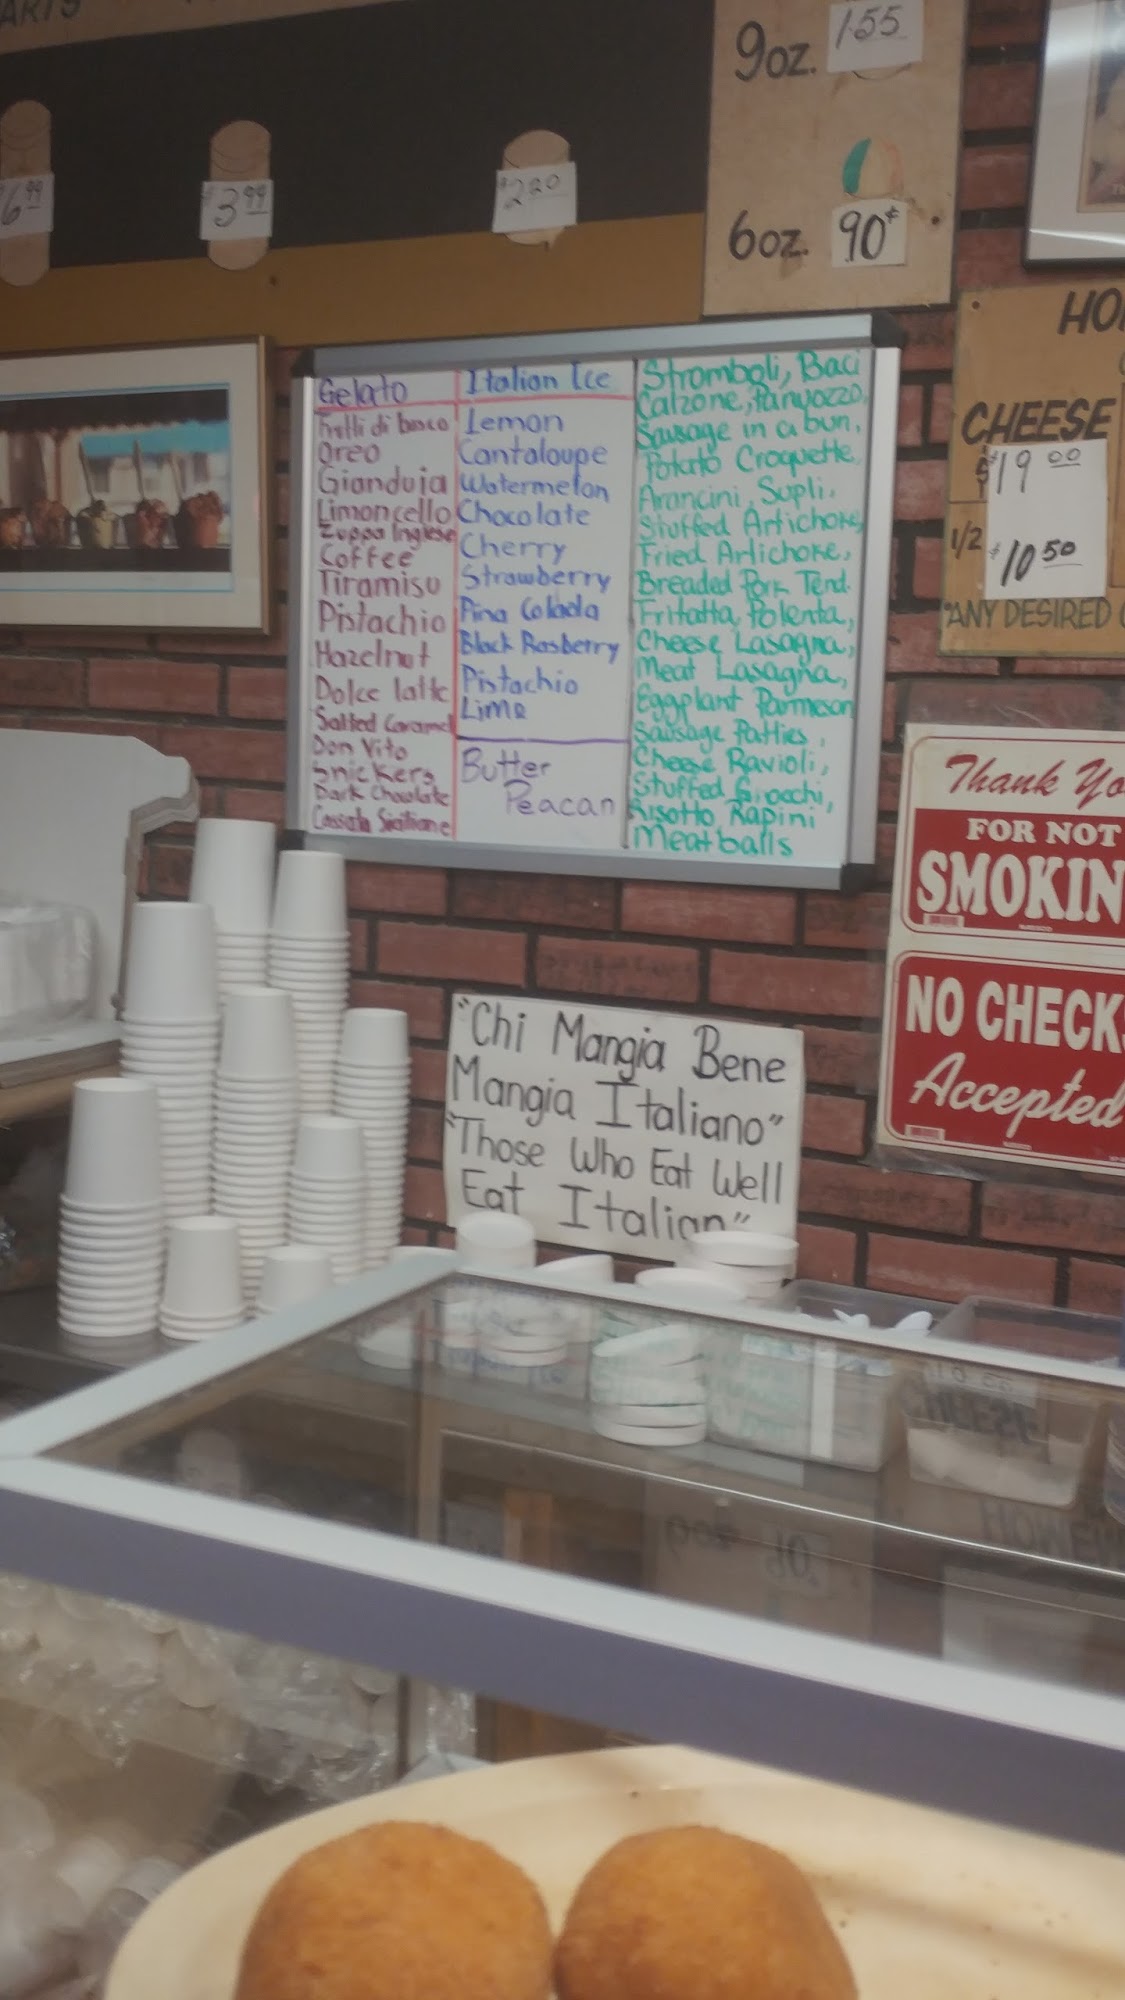 9oz. 1.55
6oz. 90¢
$3.99
$2.20
Gelato
Frutti di bosco
Oreo
Gianduja
Limoncello
Zuppa Inglese
Coffee
Tiramisu
Pistachio
Hazelnut
Dolce latte
Salted Caramel
Don Vito
Snickers
Dark Chocolate
Cassata Siciliane
Italian Ice
Lemon
Cantaloupe
Watermelon
Chocolate
Cherry
Strawberry
Pina Colada
Black Rasberry
Pistachio
Lime
Butter
Peacan
Stromboli, Baci
Calzone, Panzozzo,
Sausage in a bun,
Potato Croquette,
Arancini, Supli,
Stuffed Artichoke,
Fried Artichoke,
Breaded Pork Tend.
Fritatta, Polenta,
Cheese Lasagna,
Meat Lasagna,
Eggplant Parmesan
Sausage Patties,
Cheese Ravioli,
Stuffed Gnocchi,
Risotto Rapini
Meatballs
CHEESE
$19.00
1/2 $10.50
"ANY DESIRED
Thank Yo
FOR NOT
SMOKIN
NO CHECKS
Accepted
"Chi Mangia Bene
Mangia Italiano"
"Those Who Eat Well
Eat Italian"